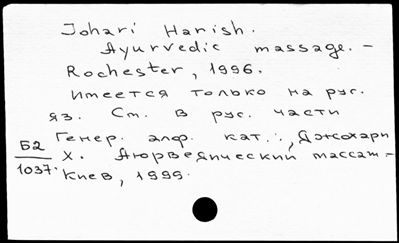 Johari Harish.
Ayurvedic massage. –
Rochester, 1996.
Имеется только на рус.
яз. См. в рус. части
Генер. алф. кат.:, Джохари
Х. Аюрведический массаж –
Киев, 1999.
Б2
1037.